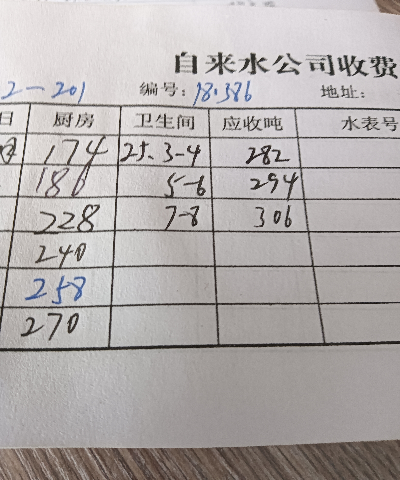 自来水公司收费
2-201 编号: 18.386 地址:
日 厨房 卫生间 应收吨 水表号
月 174 25.3-4 282
186 5-6 294
228 7-8 306
240
258
270